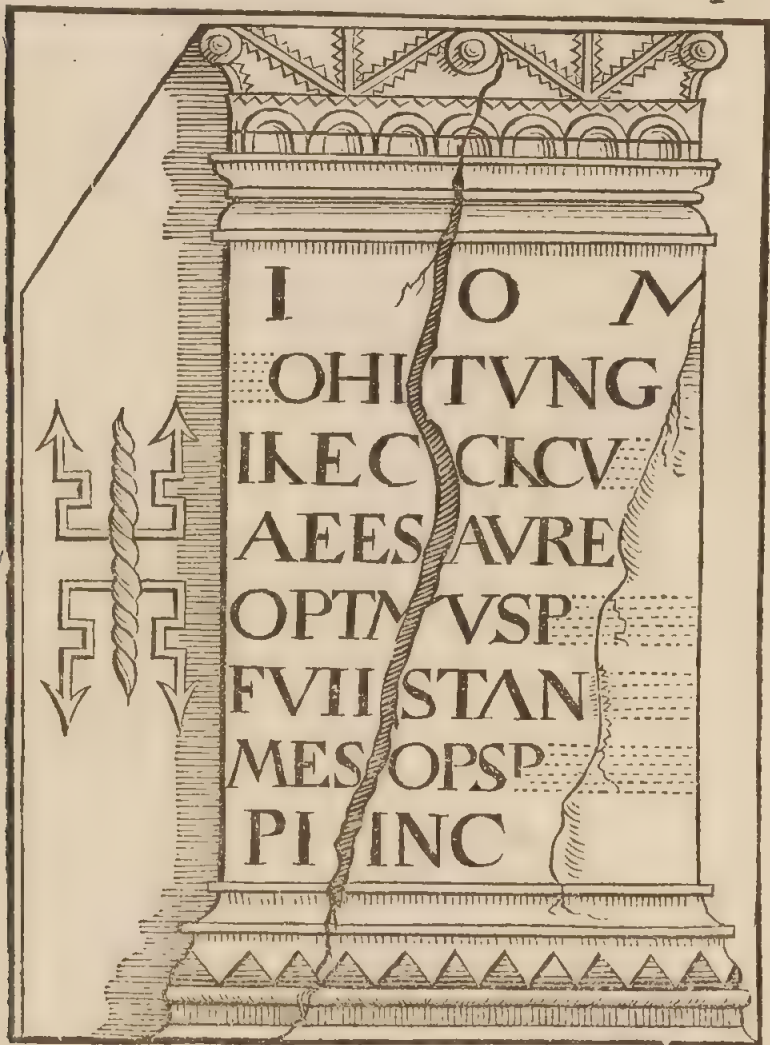 I O M
OHI TVNG
IKEC CKCV
AEES AVRE
OPTM VSP
FVII STAN
MES OPSP
PI INC